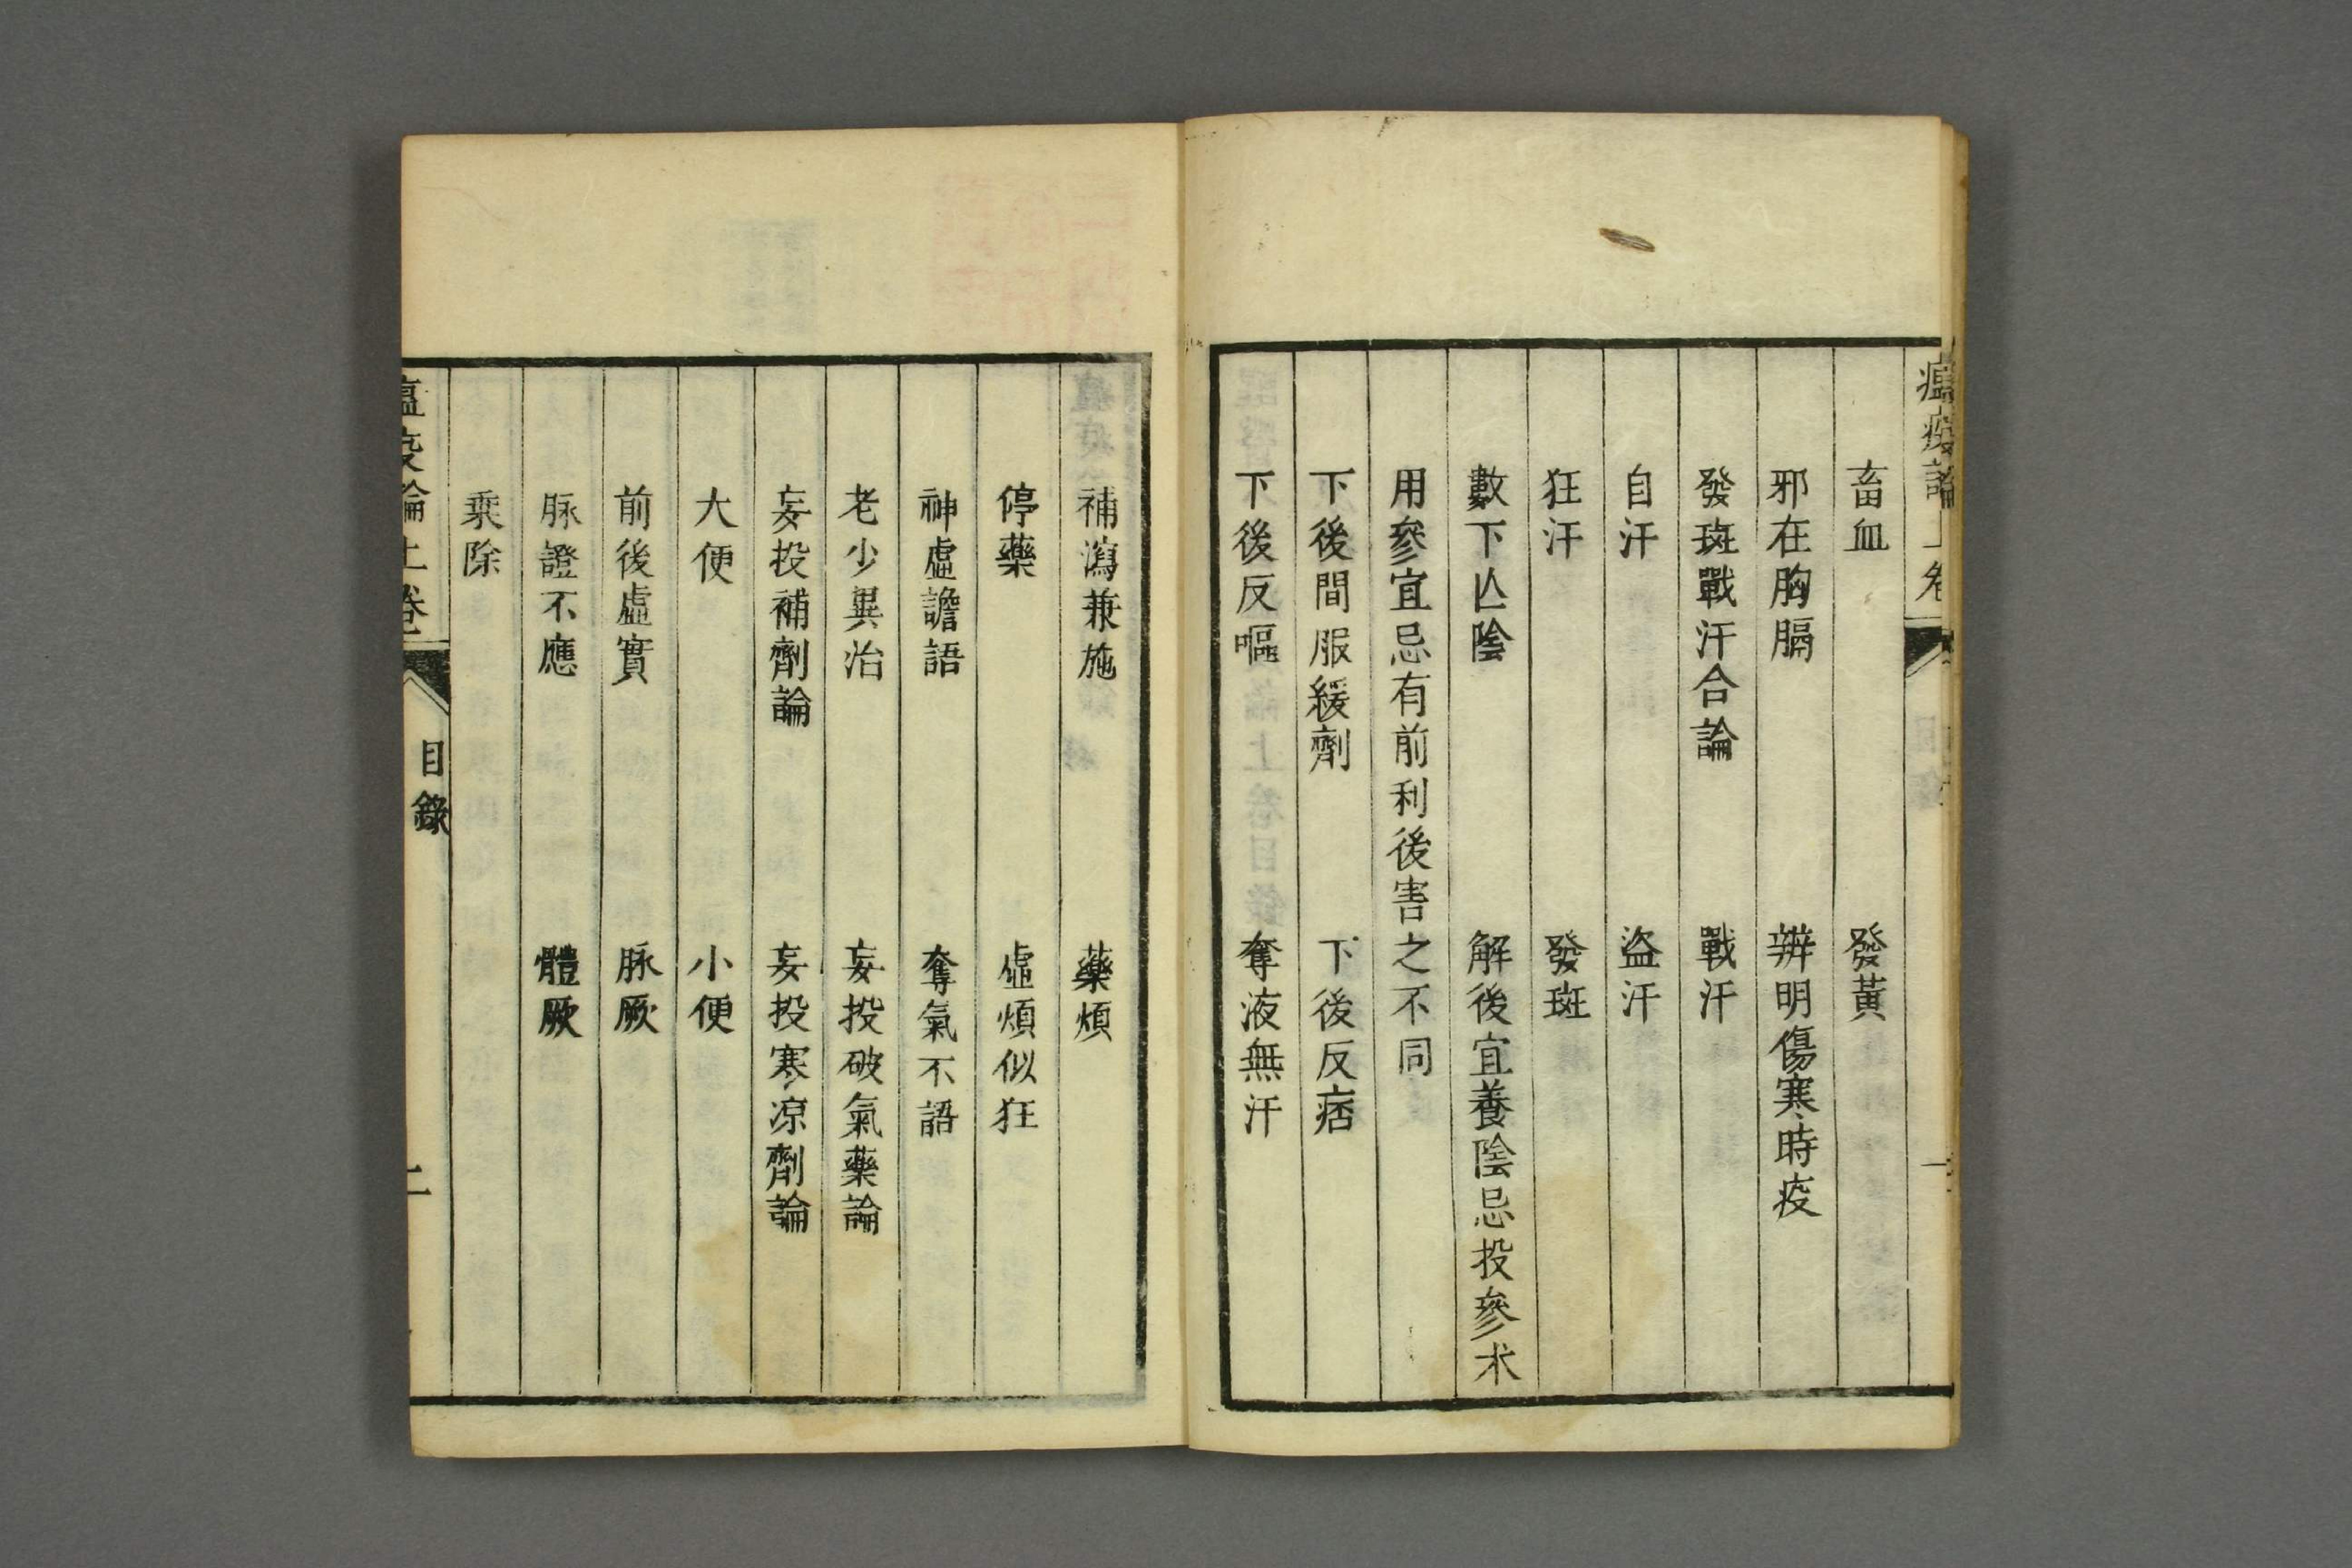 瘟疫論上卷
畜血　發黃
邪在胸膈　辨明傷寒時疫
發斑戰汗合論　戰汗
自汗　盜汗
狂汗　發斑
數下亾陰　解後宜養陰忌投參术
用參宜忌有前利後害之不同
下後間服緩劑　下後反痞
下後反嘔　奪液無汗
補瀉兼施　藥煩
停藥　虛煩似狂
神虛譫語　奪氣不語
老少異治　妄投破氣藥論
妄投補劑論　妄投寒凉劑論
大便　小便
前後虛實　脉厥
脉證不應　體厥
乗除
瘟疫論上卷　目錄　二